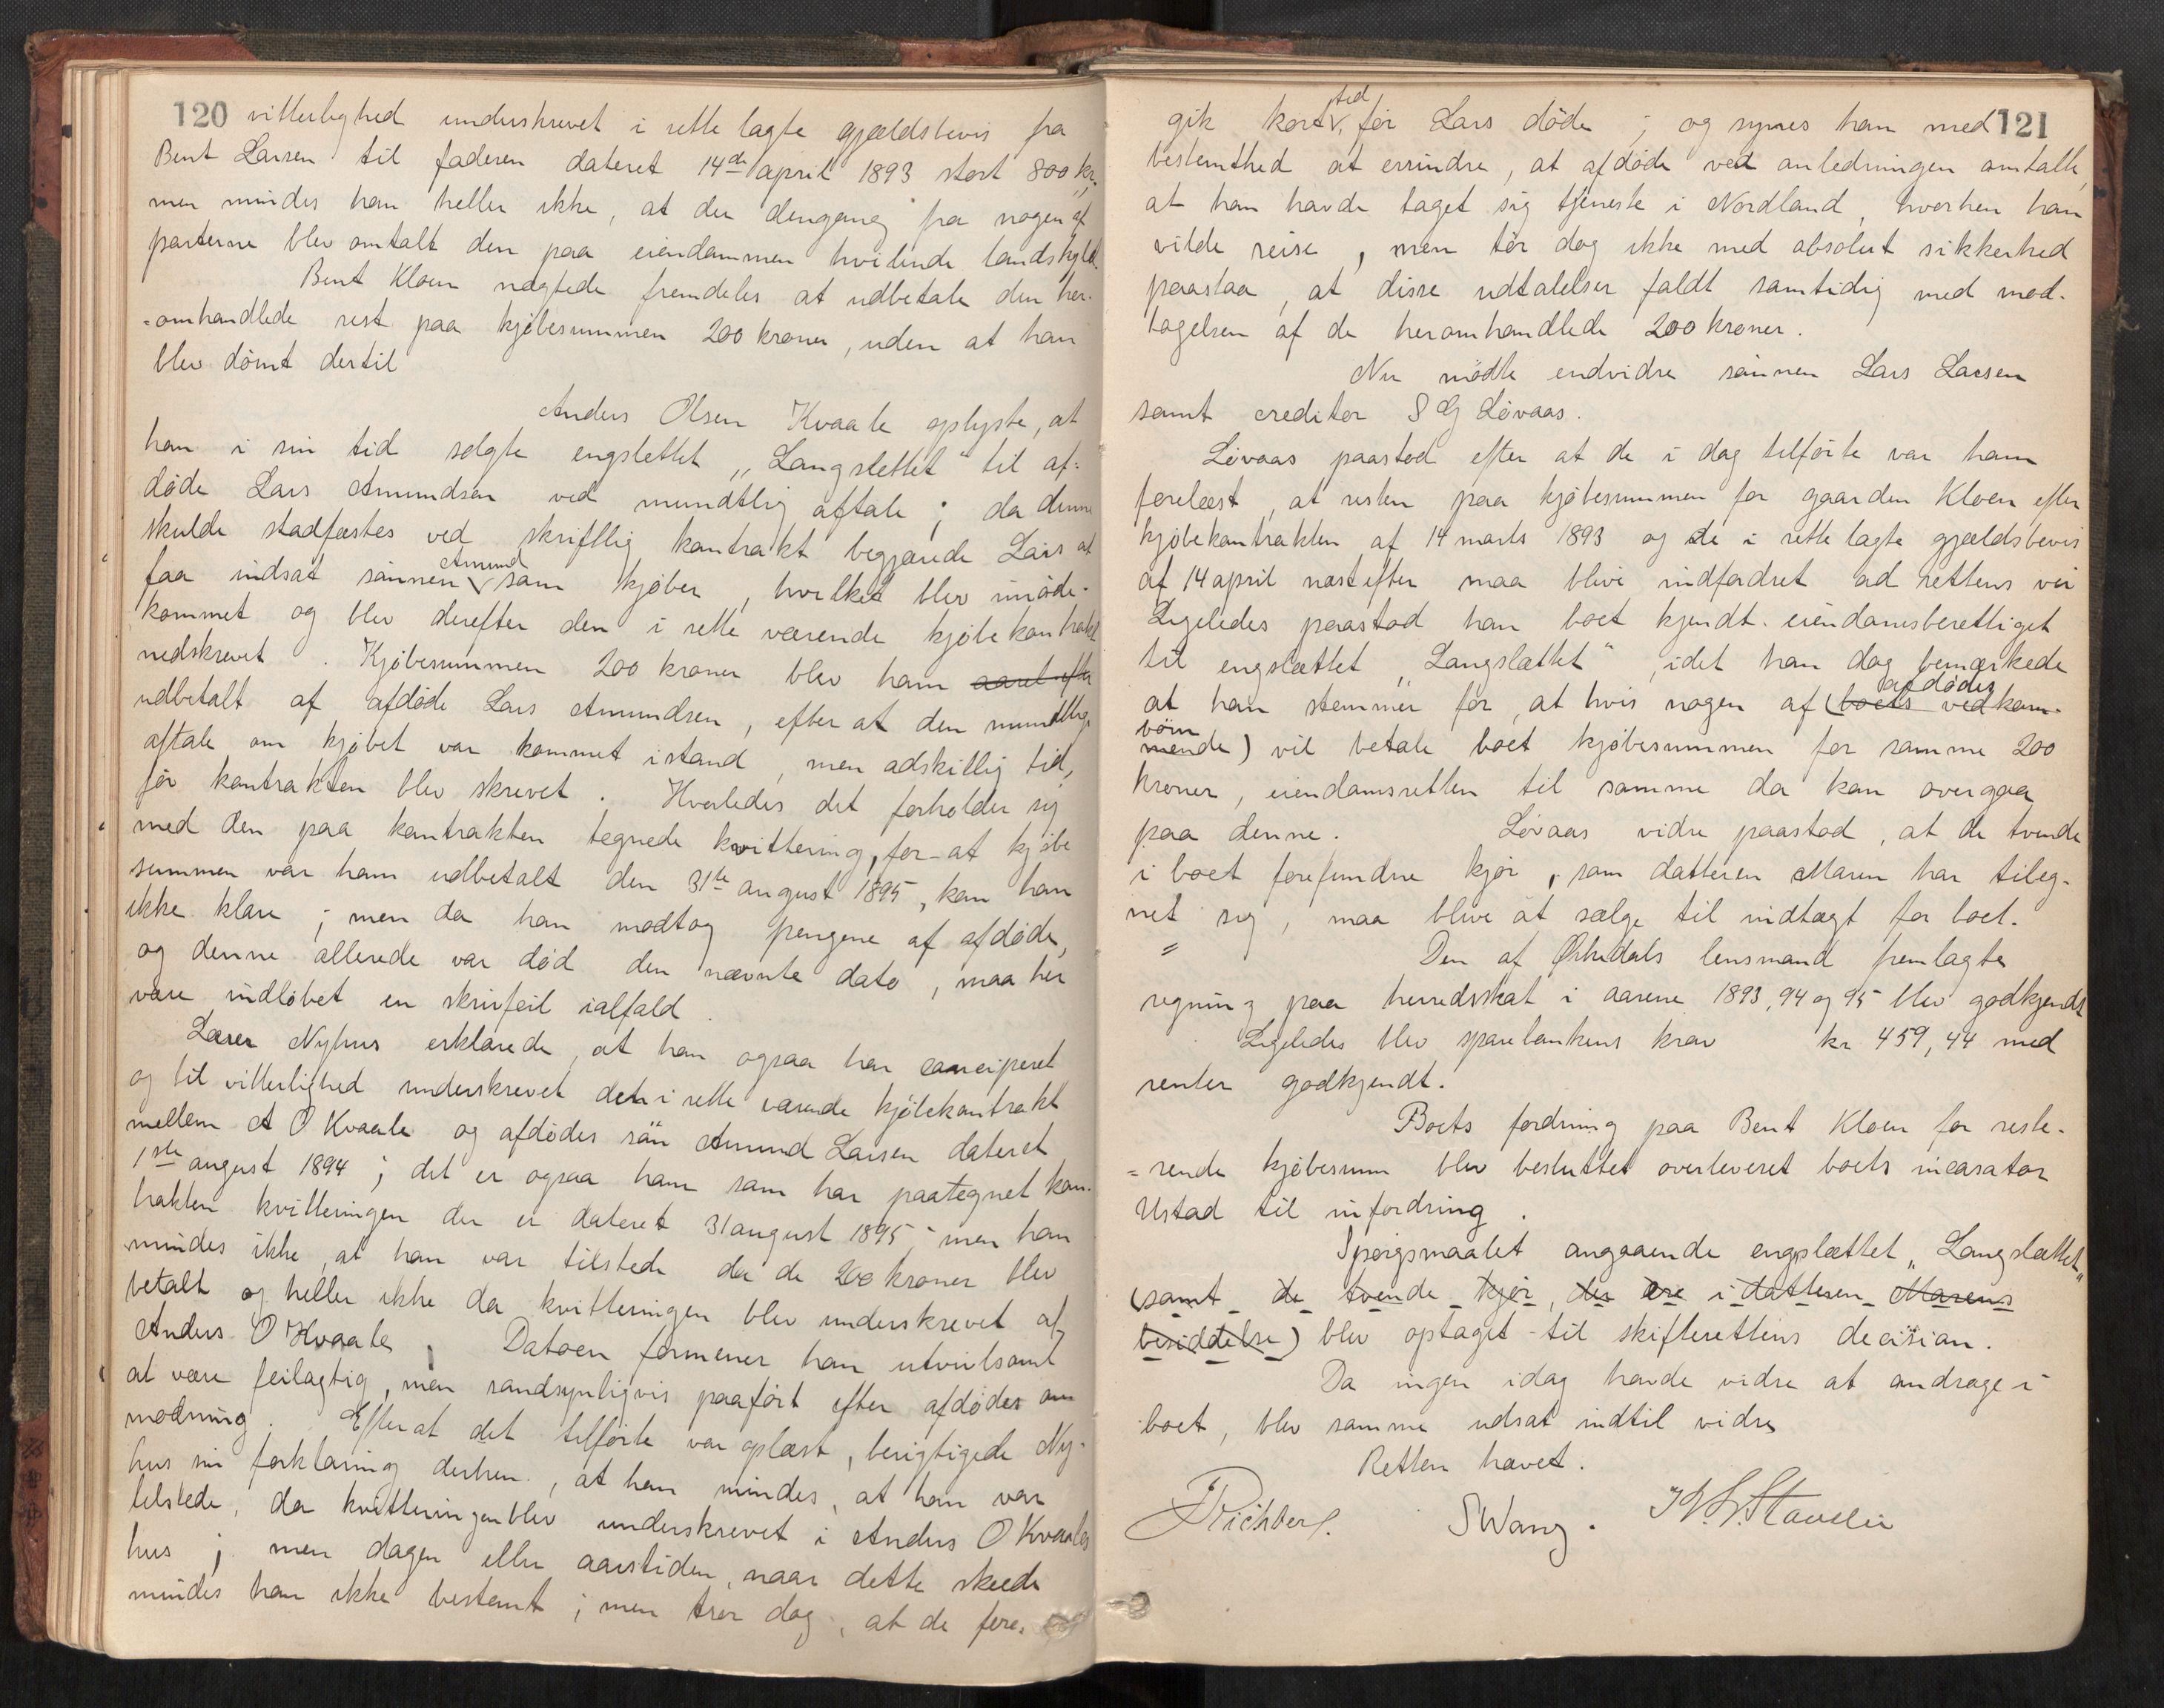 120 vitterlighed underskrevet i rette lagte gjældsbevis fra
Bent Larsen til faderen dateret 14de april 1893 stort 800 kr.
men mindes han heller ikke, at der dengang fra nogen af
parterne blev omtalt den paa eiendammen hvilende landskyld.
Bent Kloen nægtede fremdeles at udbetale den her-
=omhandlede rest paa kjøbesummen 200 kroner, uden at han
blev dømt dertil
Anders Olsen Kvaale oplyste, at
han i sin tid solgte engslettet „Langslettet" til af-
døde Lars Amundsen ved mundtlig aftale; da denne
skulde stadfæstes ved skriftlig kontrakt begjærede Lars at
faa indsat sønnen Amund som kjøber, hvilket blev imøde-
kommet og blev derefter den i rette værende kjøbekontrakt
nedskrevet. Kjøbesummen 200 kroner blev ham aaret efter
udbetalt af afdøde Lars Amundsen, efter at den mundtlige
aftale om kjøbet var kommet istand, men adskillig tid,
før kontrakten blev skrevet. Hvorledes det forholder sig
med den paa kontrakten tegnede kvittering, for at kjøbe
summen var ham udbetalt den 31te august 1895, kan han
ikke klare; men da han modtog pengene af afdøde,
og denne allerede var død den nævnte dato, maa her
være indløbet en skrivfeil ialfald.
Lærer Nyhus erklærede, at han ogsaa har conciperet
og til vitterlighed underskrevet den i rette værende kjøbekontrakt
mellem A O Kvaale og afdødes søn Amund Larsen dateret
1ste august 1894; det er ogsaa ham som har paategnet kon-
trakten kvitteringen der er dateret 31 august 1895; men han
mindes ikke, at han var tilstede da de 200 kroner blev
betalt og heller ikke da kvitteringen blev underskrevet af
Anders O Kvaale. Datoen formener han utvivlsomt
at være feilagtig, men sandsynligvis paaført efter afdødes an
modning. Efterat det tilførte var oplæst, berigtigede Ny-
hus sin forklaring derhen, at han mindes, at han var
tilstede, da kvitteringen blev underskrevet i Anders O Kvaales
hus; men dagen eller aarstiden, naar dette skede
mindes han ikke bestemt; men tror dog, at de fore-
gik kort tid før Lars døde; og synes han med 121
bestemthed at errindre, at afdøde ved anledningen omtalte,
at han havde taget sig tjeneste i Nordland, hvorhen han
vilde reise, men tør dog ikke med absolut sikkerhed
paastaa, at disse udtalelser faldt samtidig med mod-
tagelsen af de heromhandlede 200 kroner.
Nu mødte endvidre sønnen Lars Larsen
samt creditor S G Løvaas.
Løvaas paastod efter at de i dag tilførte var ham
forelæst, at resten paa kjøbesummen for gaarden Kloen efter
kjøbekontrakten af 14 marts 1893 og de i rette lagte gjældsbevis
af 14 april næstefter maa blive indfordret ad rettens vei
Ligeledes paastod han boet kjendt eiendomsberettiget
til engslættet „Langslættet", idet han dog bemærkede
at han stemmer for, at hvis nogen af (boets vedkom- afdødes
mende) børn vil betale boet kjøbesummen for samme 200
kroner, eiendomsretten til samme da kan overgaa
paa denne. Løvaas vidre paastod, at de tvende
i boet forefundne kjør, som datteren Maren har tileg-
net sig, maa blive at sælge til indtægt for boet.
= Den af Ørkedals lensmand fremlagte
regning paa herredsskat i aarene 1893, 94 og 95 blev godkjendt
Ligeledes blev sparebankens krav kr 459,44 med
renter godkjendt.
Boets fordring paa Bent Kloen for reste-
=rende kjøbesum blev besluttet overleveret boets incasator
Ustad til infordring.
Spørgsmaalet angaaende engslættet „Langslættet"
(samt de tvende kjør, der ere i datteren Marens
besiddelse) blev optaget til skifterettens decision.
Da ingen idag havde vidre at andrage i
boet, blev samme udsat indtil vidre
Retten hævet.
SWang.